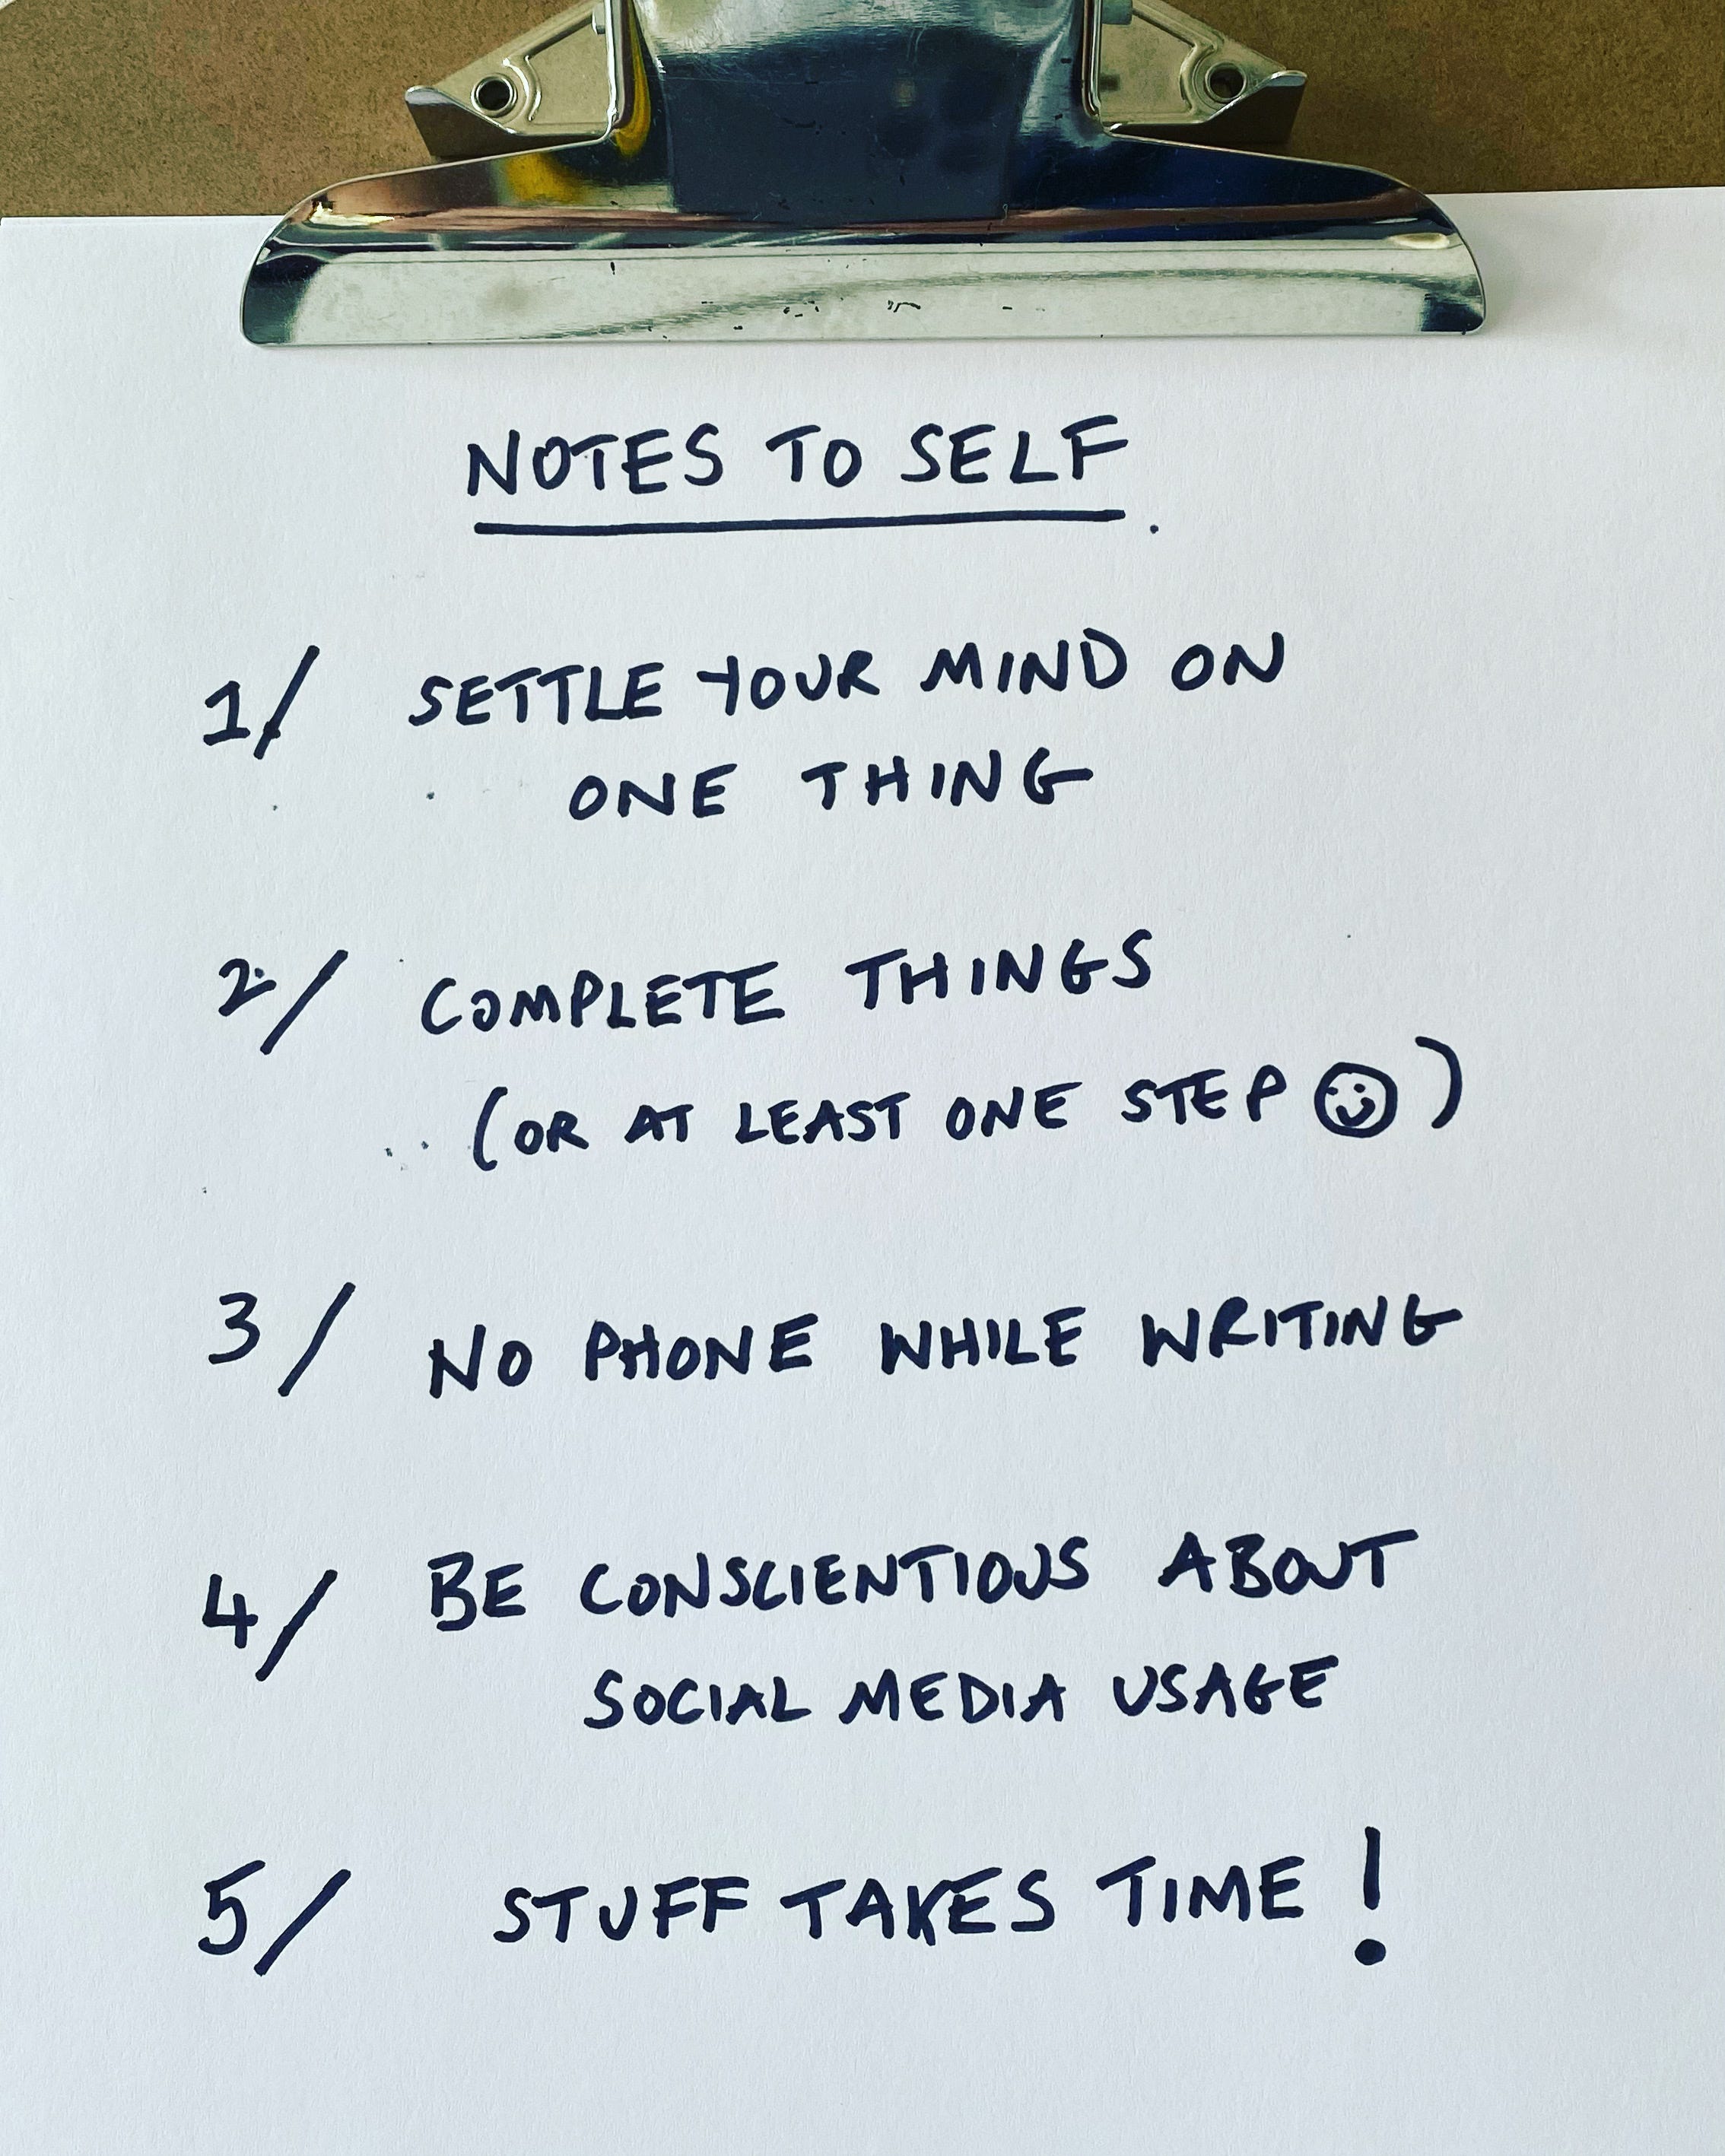 NOTES TO SELF.
1/ SETTLE YOUR MIND ON
ONE THING
2/ COMPLETE THINGS
(OR AT LEAST ONE STEP ☺)
3/ NO PHONE WHILE WRITING
4/ BE CONSCIENTIOUS ABOUT
SOCIAL MEDIA USAGE
5/ STUFF TAKES TIME!